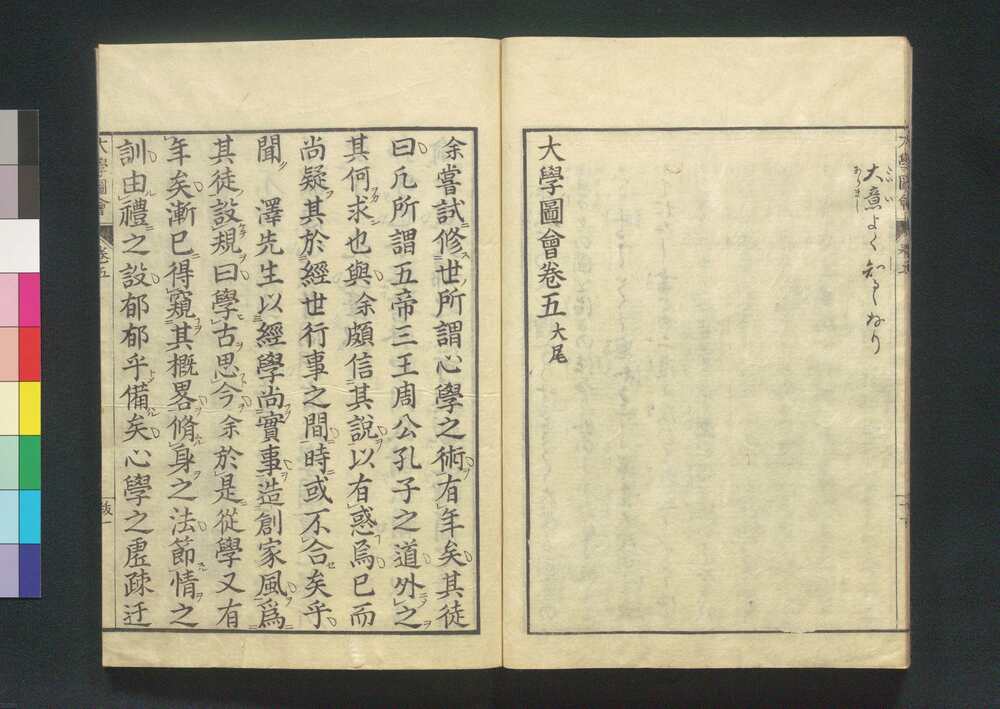 大意よく知るべし
大學圖會卷五 大尾
余嘗試修世所謂心學之術有年矣其徒
曰凡所謂五帝三王周公孔子之道外之
其何求也與余頗信其說以有惑焉已而
尚疑其於經世行事之間時或不合矣乎
聞 澤先生以經學尚實事造創家風爲
其徒設規曰學古思今余於是從學又有
年矣漸已得窺其概畧脩身之法節情之
訓由禮之設郁郁乎備矣心學之虛疎迂
大學圖會
卷五
跋一